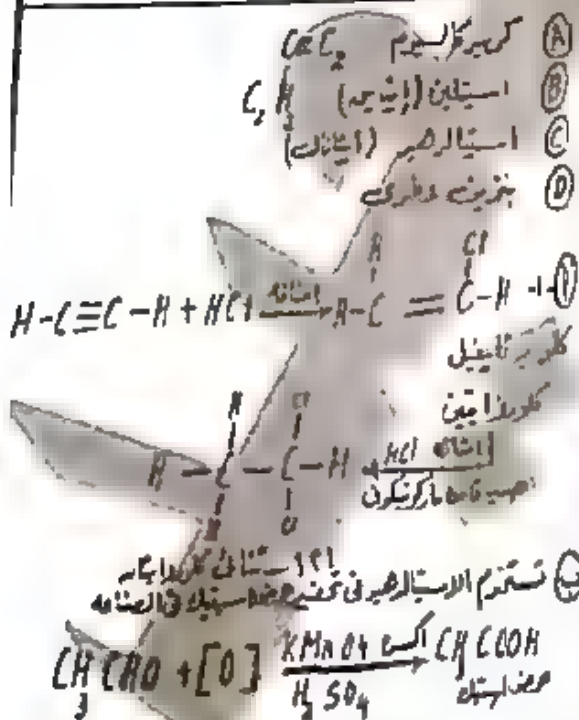 Ⓐ كربيد كالسيوم CaC₂
Ⓑ استيلين (إيثاين) C₂H₂
Ⓒ اسيتالدهيد (إيثانال)
Ⓓ بنزين عطرى
H-C≡C-H + HCl اضافة → H-C(H)=C(Cl)-H -1
كلوريد فاينيل
كلورو إيثين
اضافة HCl
حسب قاعدة ماركونيكوف
H-C-C-H
H Cl
1،1 ثنائى كلورو ايثان
تستخدم الاسيتالدهيد فى تحضير حمض اسيتيك فى الصناعه
CH₃CHO + [O] اكسدة KMnO₄ / H₂SO₄ → CH₃COOH
حمض اسيتيك